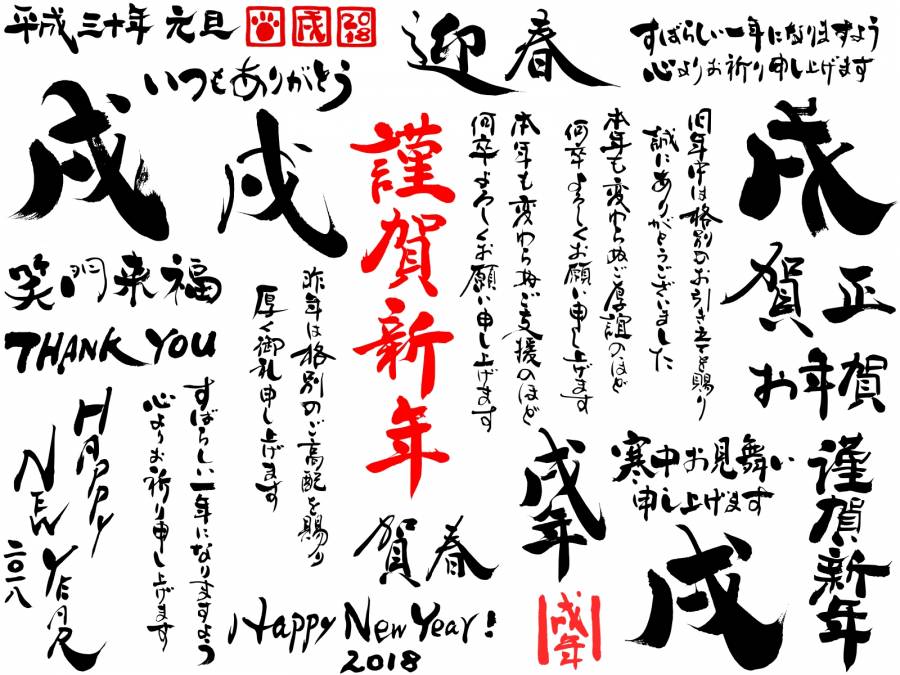 平成三十年 元旦
戌
2018
迎春
すばらしい一年になりますよう
心よりお祈り申し上げます
いつもありがとう
戌
戌
謹賀新年
本年も変わらぬご支援のほど
何卒よろしくお願い申し上げます
旧年中は格別のお引き立てを賜り
誠にありがとうございました
本年も変わらぬご厚誼のほど
何卒よろしくお願い申し上げます
戌
賀正
お年賀
笑門来福
THANK YOU
昨年は格別のご高配を賜り
厚く御礼申し上げます
すばらしい一年になりますよう
心よりお祈り申し上げます
HAPPY
NEW YEAR
二〇一八
賀春
Happy New Year!
2018
戌年
戌年
寒中お見舞い
申し上げます
戌
謹賀新年